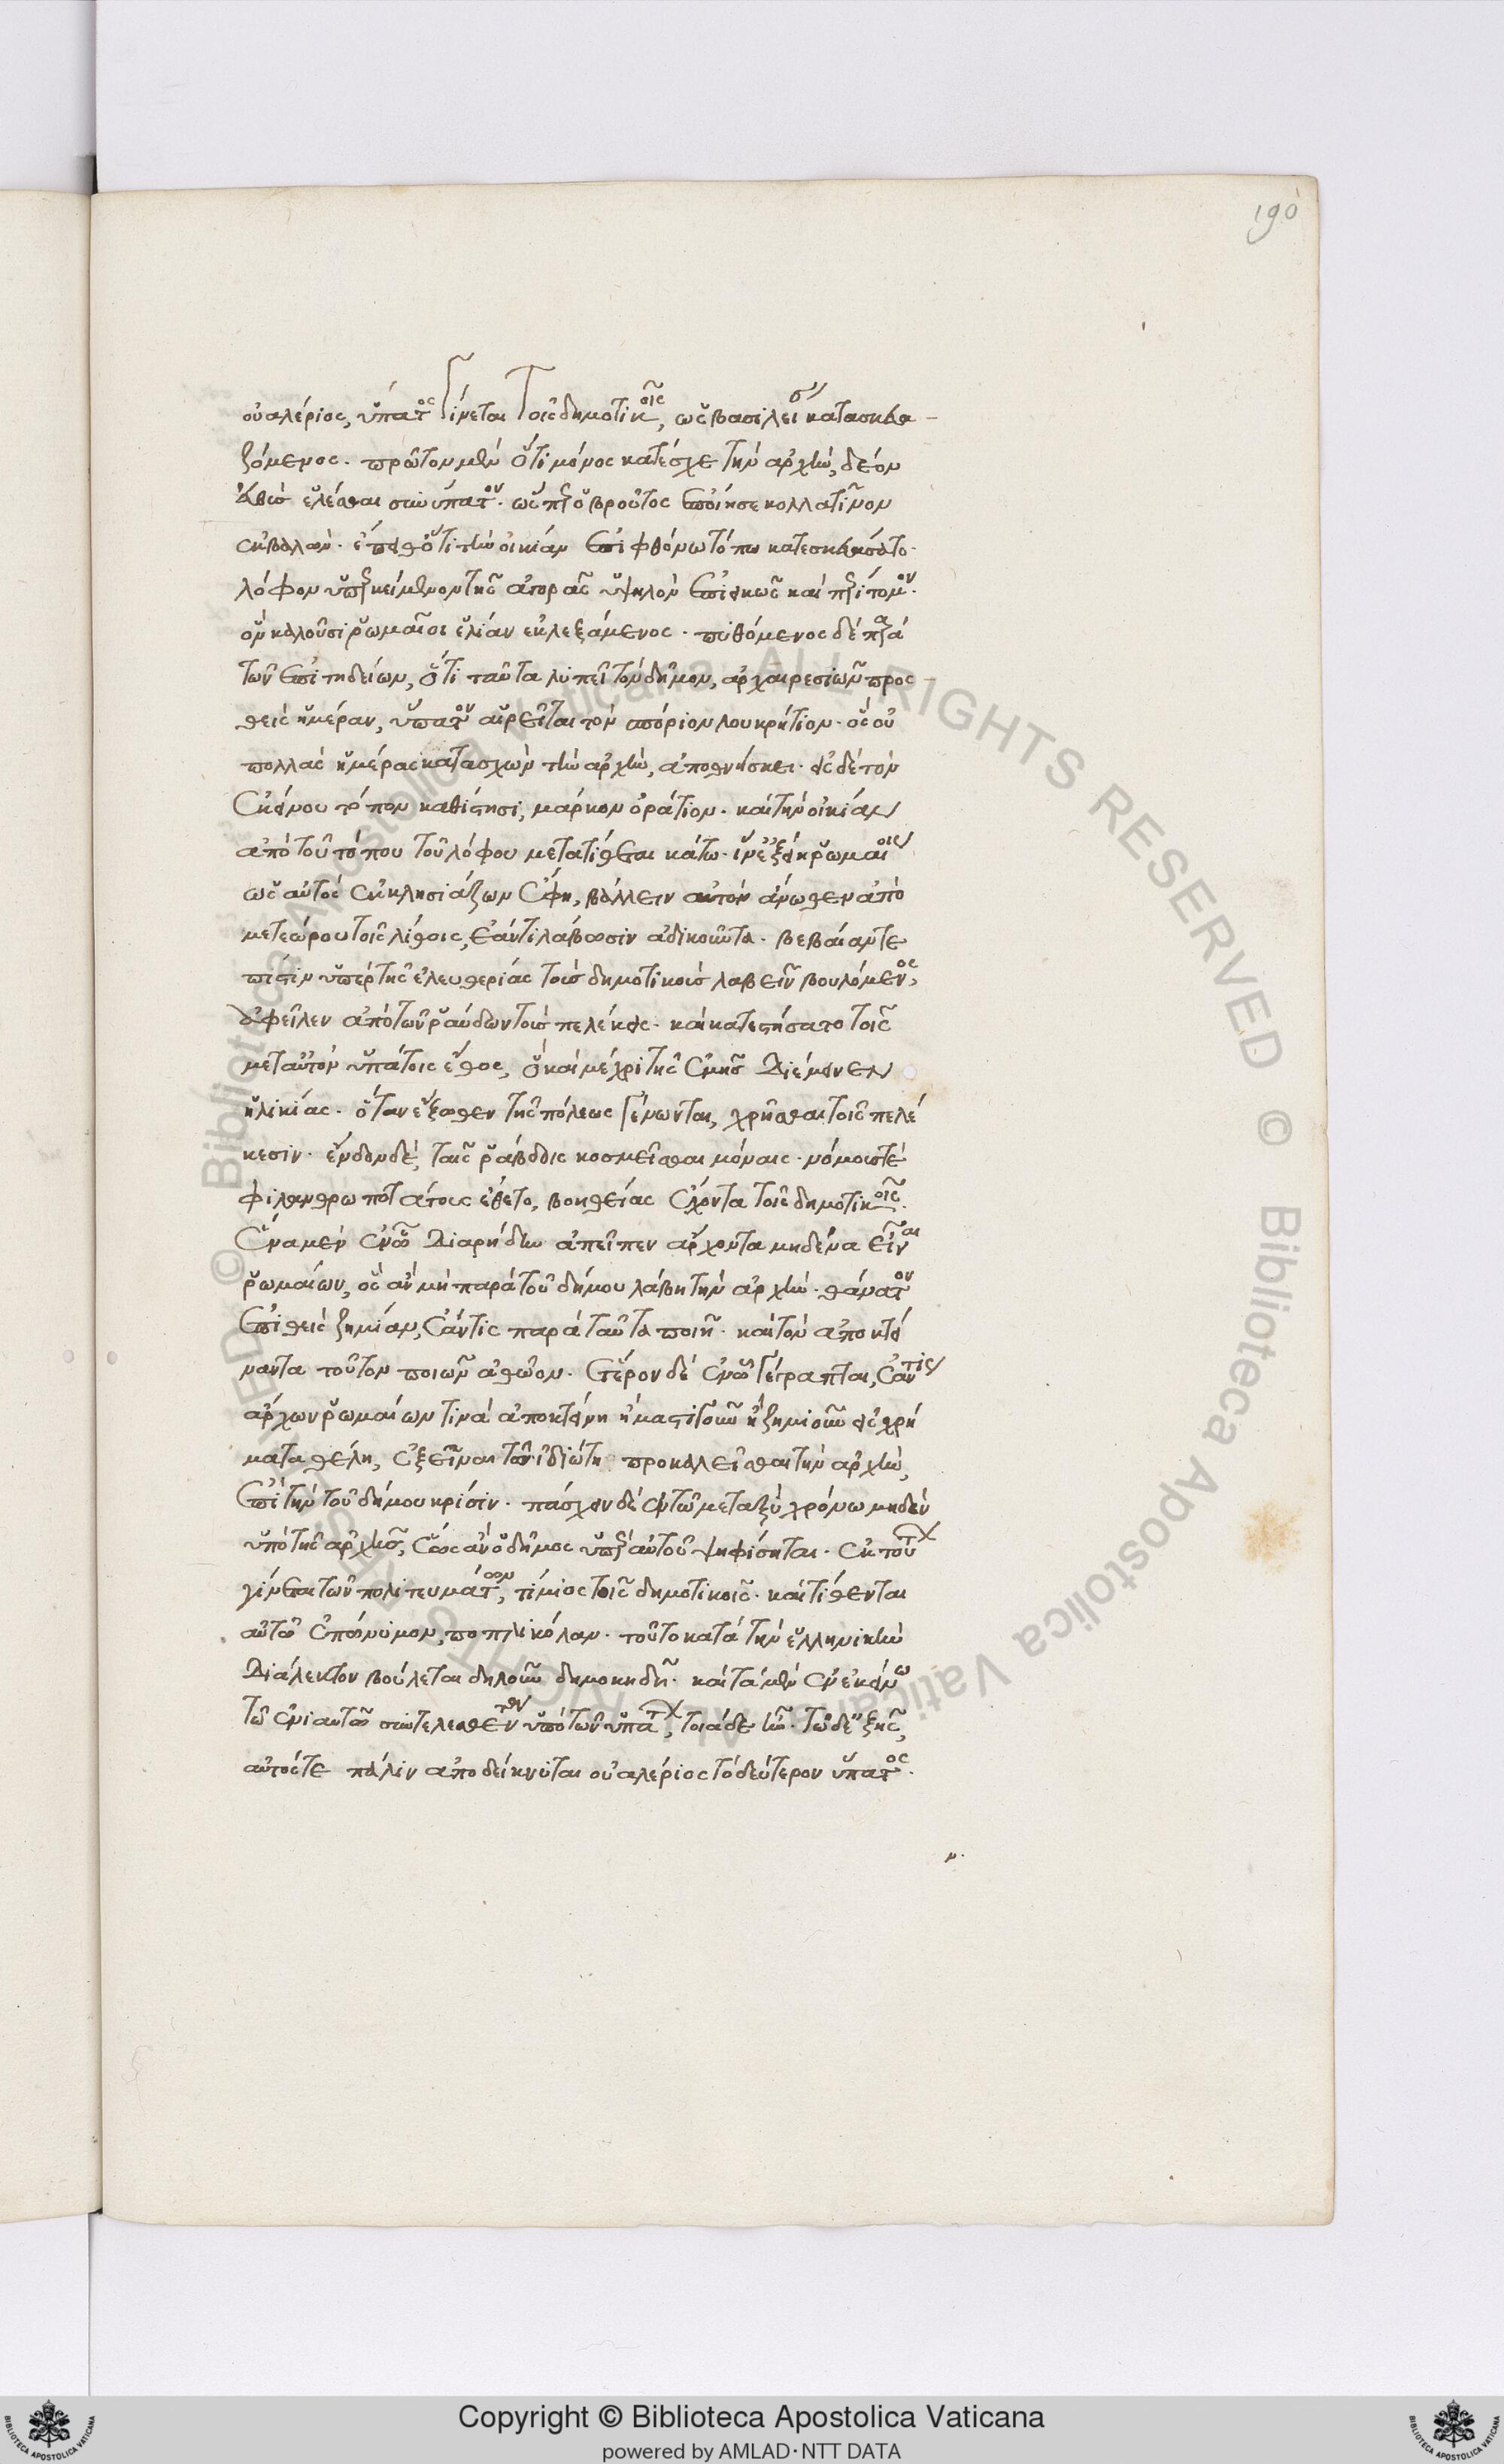 190
οὐαλέριος, ὕπατος γίνεται τοῖς δημοτικοῖς, ὡς βασιλείαν κατασκευα-
ζόμενος. πρῶτον μὲν ὅτι μόνος κατέσχε τὴν ἀρχὴν, δέον
εὐθὺς ἑλέσθαι συνύπατον. ὥσπερ ὁ βροῦτος ἐποίησε κολλατῖνον
ἐκβαλών. ἔπειθ' ὅτι τὴν οἰκίαν ἐπιφθόνω τόπω κατεσκευάσατο.
λόφον ὑπερκείμενον τῆς ἀγορᾶς ὑψηλὸν ἐπιεικῶς καὶ περίτομον.
ὃν καλοῦσι ῥωμαῖοι ἐλίαν ἐκλεξάμενος. πυθόμενος δὲ παρὰ
τῶν ἐπιτηδείων, ὅτι ταῦτα λυπεῖ τὸν δῆμον, ἀρχαιρεσιῶν προς-
θεὶς ἡμέραν, ὕπατον αἱρεῖται τὸν σπόριον λουκρήτιον. ὃς οὐ
πολλὰς ἡμέρας κατασχὼν τὴν ἀρχὴν, ἀποθνήσκει. εἰς δὲ τὸν
ἐκείνου τόπον καθίστησι, μάρκον ὁράτιον. καὶ τὴν οἰκίαν
ἀπὸ τοῦ τόπου τοῦ λόφου μετατίθεται κάτω. ἵν' ἐξείη ῥωμαίοις
ὡς αὐτὸς ἐκκλησιάζων ἔφη, βάλλειν αὐτὸν ἄνωθεν ἀπὸ
μετεώρου τοῖς λίθοις, ἐάν τι λάβωσιν ἀδικοῦντα. βεβαίαν τε
πίστιν ὑπὲρ τῆς ἐλευθερίας τοῖς δημοτικοῖς λαβεῖν βουλόμενος,
ἀφεῖλεν ἀπὸ τῶν ῥάβδων τοὺς πελέκεις. καὶ κατεστήσατο τοῖς
μετ' αὐτὸν ὑπάτοις ἔθος, ὃ καὶ μέχρι τῆς ἐμῆς διέμεινεν
ἡλικίας. ὅταν ἔξωθεν τῆς πόλεως γένωνται, χρῆσθαι τοῖς πελέ
κεσιν. ἔνδον δὲ, ταῖς ῥάβδοις κοσμεῖσθαι μόναις. νόμους τὲ
φιλανθρωποτάτους ἔθετο, βοηθείας ἔχοντα τοῖς δημοτικοῖς.
ἕνα μὲν ἐν ᾧ διαρρήδην ἀπεῖπεν ἄρχοντα μηδένα εἶναι
ῥωμαίων, ὃς ἂν μὴ παρὰ τοῦ δήμου λάβη τὴν ἀρχήν. θάνατον
ἐπιθεὶς ζημίαν, ἐάν τις παρὰ ταῦτα ποιῆ. καὶ τὸν ἀποκτεί
ναντα τοῦτον ποιῶν ἀθῶον. ἕτερον δὲ ἐν ᾧ γέγραπται, ἐάν τις
ἄρχων ῥωμαίων τινὰ ἀποκτείνη ἢ μαστιγοῦν ἢ ζημιοῦν εἰς χρή
ματα θέλη, ἐξεῖναι τῶ ἰδιώτη προκαλεῖσθαι τὴν ἀρχὴν,
ἐπὶ τὴν τοῦ δήμου κρίσιν. πάσχειν δὲ ἐν τῶ μεταξὺ χρόνω μηδὲν
ὑπὸ τῆς ἀρχῆς, ἕως ἂν ὁ δῆμος ὑπὲρ αὐτοῦ ψηφίσηται. ἐκ τούτων
γίνεται τῶν πολιτευμάτων, τίμιος τοῖς δημοτικοῖς. καὶ τίθενται
αὐτῶ ἐπώνυμον, ποπλικόλαν. τοῦτο κατὰ τὴν ἑλληνικὴν
διάλεκτον βούλεται δηλοῦν δημοκηδῆ. καὶ τὰ μὲν ἐν ἐκείνω
τῶ ἐνιαυτῶ συντελεσθέντα ὑπὸ τῶν ὑπάτων, τοιάδε ἦν. τῶ δ' ἑξῆς,
αὐτός τε πάλιν ἀποδείκνυται οὐαλέριος τὸ δεύτερον ὕπατος.
Copyright © Biblioteca Apostolica Vaticana
powered by AMLAD·NTT DATA